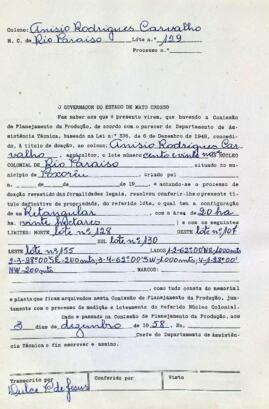 Colono: Anisio Rodrigues Carvalho
N. C. de Rio Paraiso Lote n.º 129
Processo n.º
O GOVERNADOR DO ESTADO DE MATO GROSSO
Faz saber aos que o presente virem, que havendo a Comissão
de Planejamento da Produção, de acordo com o parecer do Departamento de As-
sistência Técnica, baseado na Lei n.º 336, de 6 de Dezembro de 1949, concedi-
do, à título de doação, ao colono: Anisio Rodrigues Car-
valho, agricultor, o lote número cento vinte nove NÚCLEO
COLONIAL DE Rio Paraiso situado no mu-
nicípio de Poxoréu, criado pel
de de de 19 , e achando-se o processo de
doação revestido das formalidades legais, resolveu conferir-lhe o presente tí-
tulo definitivo de propriedade, do referido lote, o qual tem a configuração
de Retangular com a área de 20 ha
(vinte hectares) e com os seguintes
LIMITES: NORTE lote nº 128 OESTE lote nº 107
SUL lote nº 130
LESTE lote nº 155 LADOS: 1-2-62º00'NE-1.000mts
2-3-28º00'SE-200mts; 3-4-62º00'SW-1.000mts; 4-1-28º00'
NW-200mts MARCOS:
, como tudo consta do memorial
e planta que ficam arquivados nesta Comissão de Planejamento da Produção, jun-
tamente com o processo de medição e loteamento do referido Núcleo Colonial.
Dado e passado na Comissão de Planejamento da Produção, aos
3 dias de dezembro de 1958. Eu,
Chefe do Departamento de Assistência
Técnica o fiz escrever e assino.
Transcrito por Conferido por Visto
Dulce P de Jesus